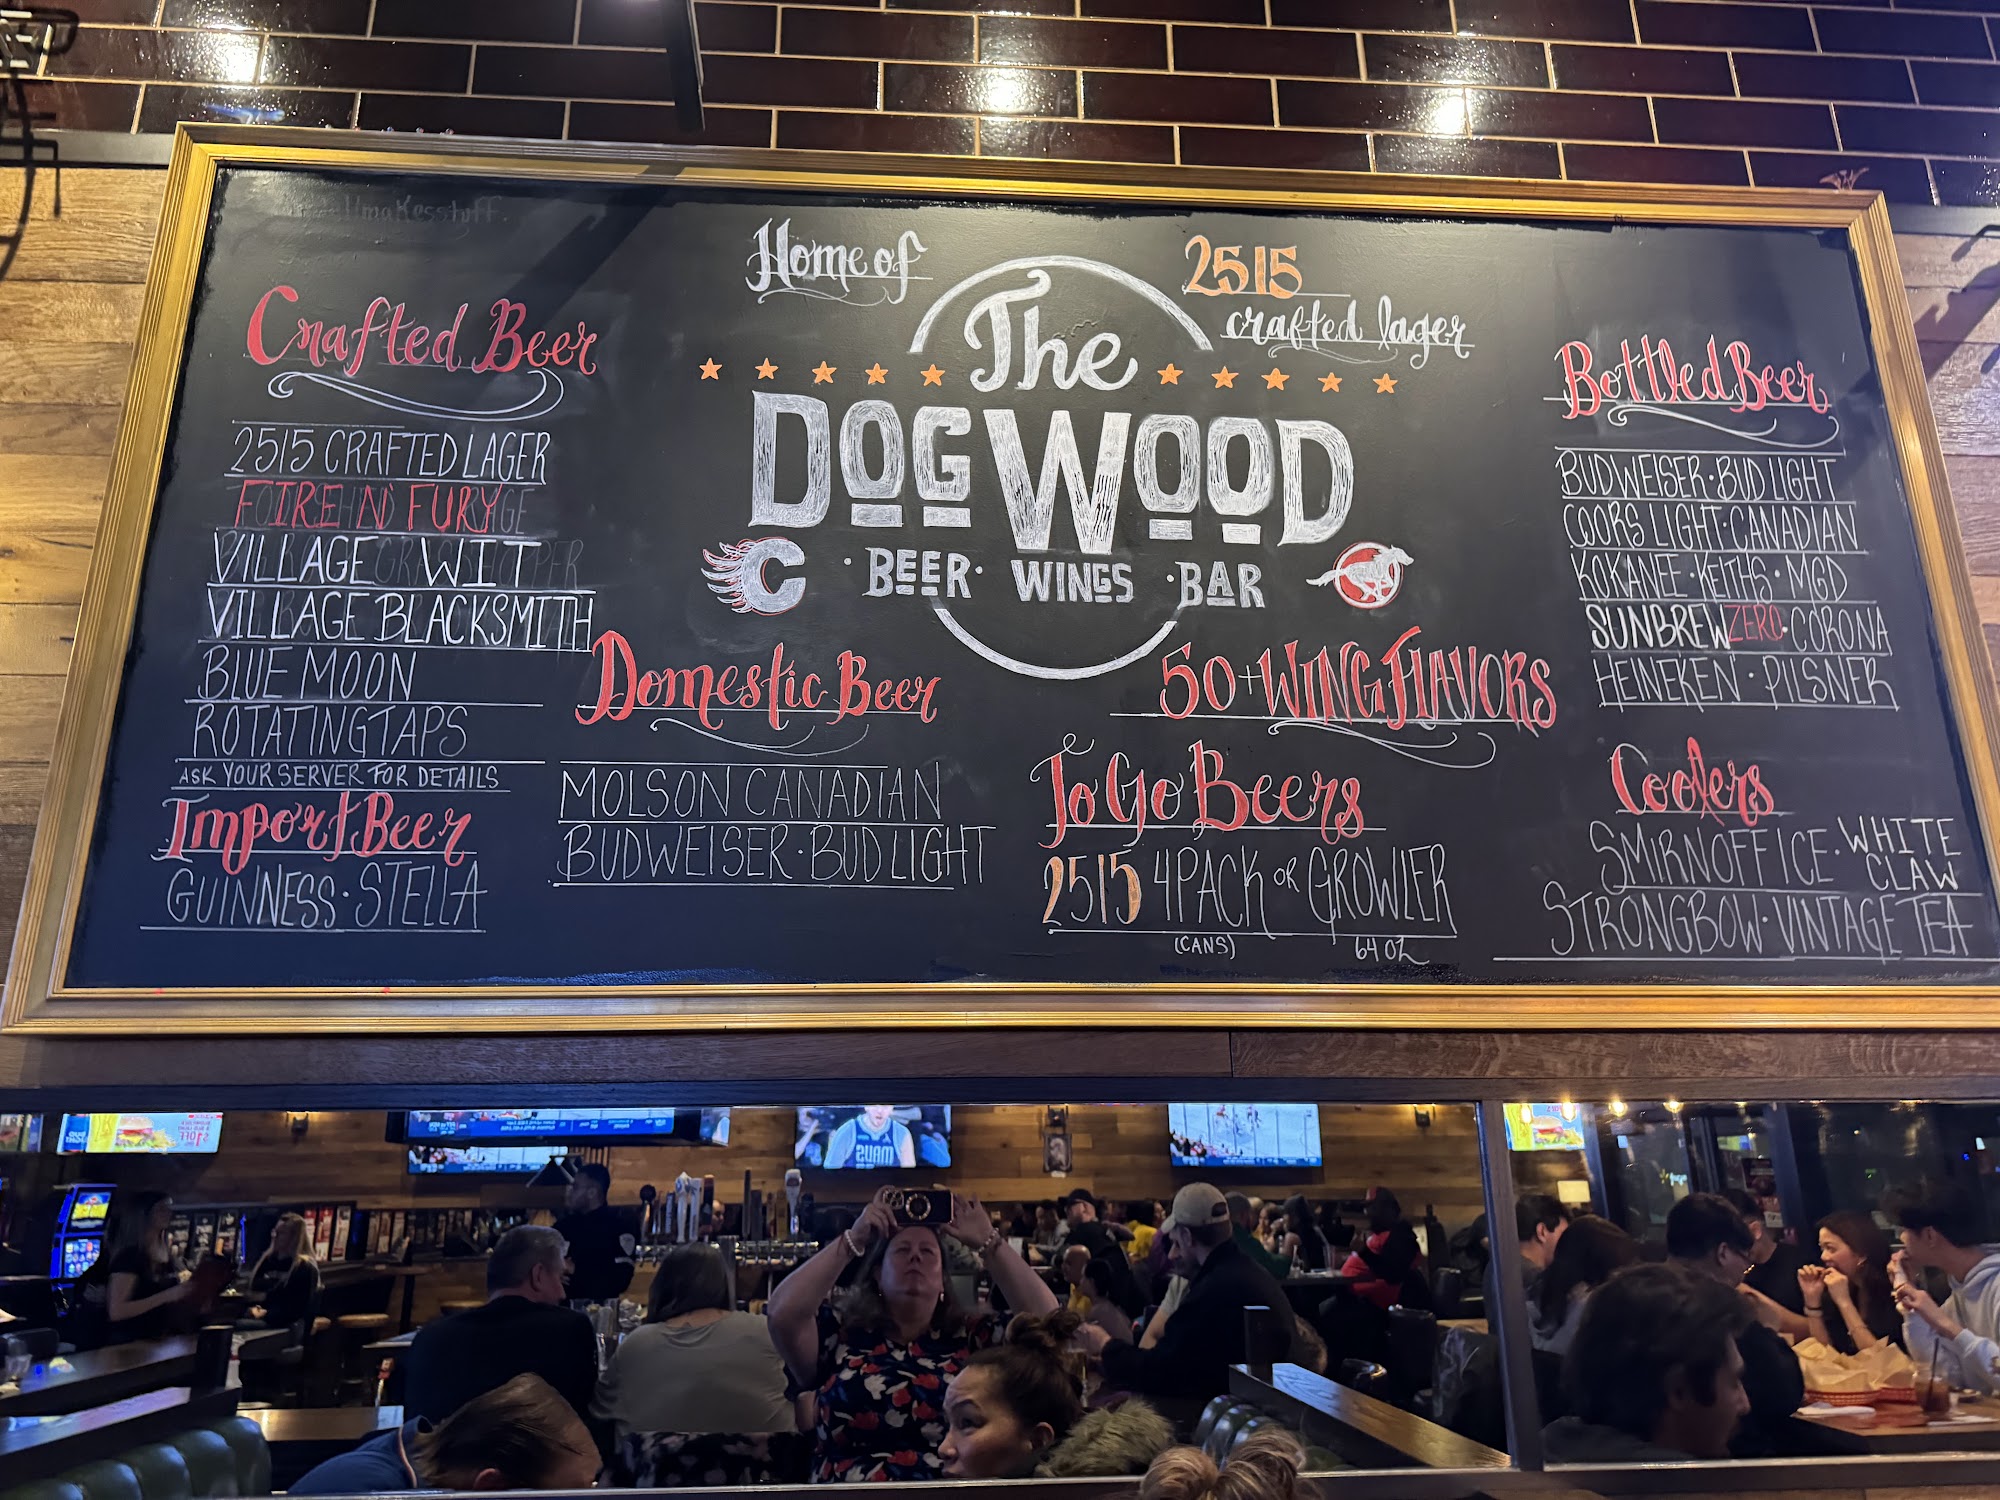 Home of
2515
crafted lager
The
DOGWOOD
· BEER · WINGS · BAR
C
Crafted Beer
2515 CRAFTED LAGER
FIRE N FURY
VILLAGE WIT
VILLAGE BLACKSMITH
BLUE MOON
ROTATING TAPS
ASK YOUR SERVER FOR DETAILS
Import Beer
GUINNESS · STELLA
Domestic Beer
MOLSON CANADIAN
BUDWEISER · BUD LIGHT
50+ WING FLAVORS
To Go Beers
2515 4PACK OR GROWLER
(CANS) 64 OZ
Bottled Beer
BUDWEISER · BUD LIGHT
COORS LIGHT · CANADIAN
KOKANEE · KEITHS · MGD
SUNBREW ZERO · CORONA
HEINEKEN · PILSNER
Coolers
SMIRNOFF ICE · WHITE CLAW
STRONGBOW · VINTAGE TEA